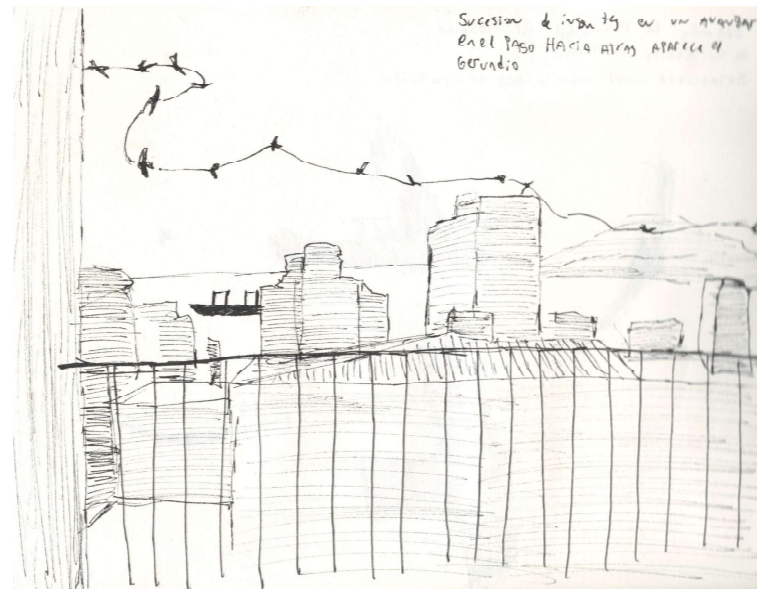 Sucesion de en un avanzar
en el PASO HACIA Atras APARece el
Gerundio